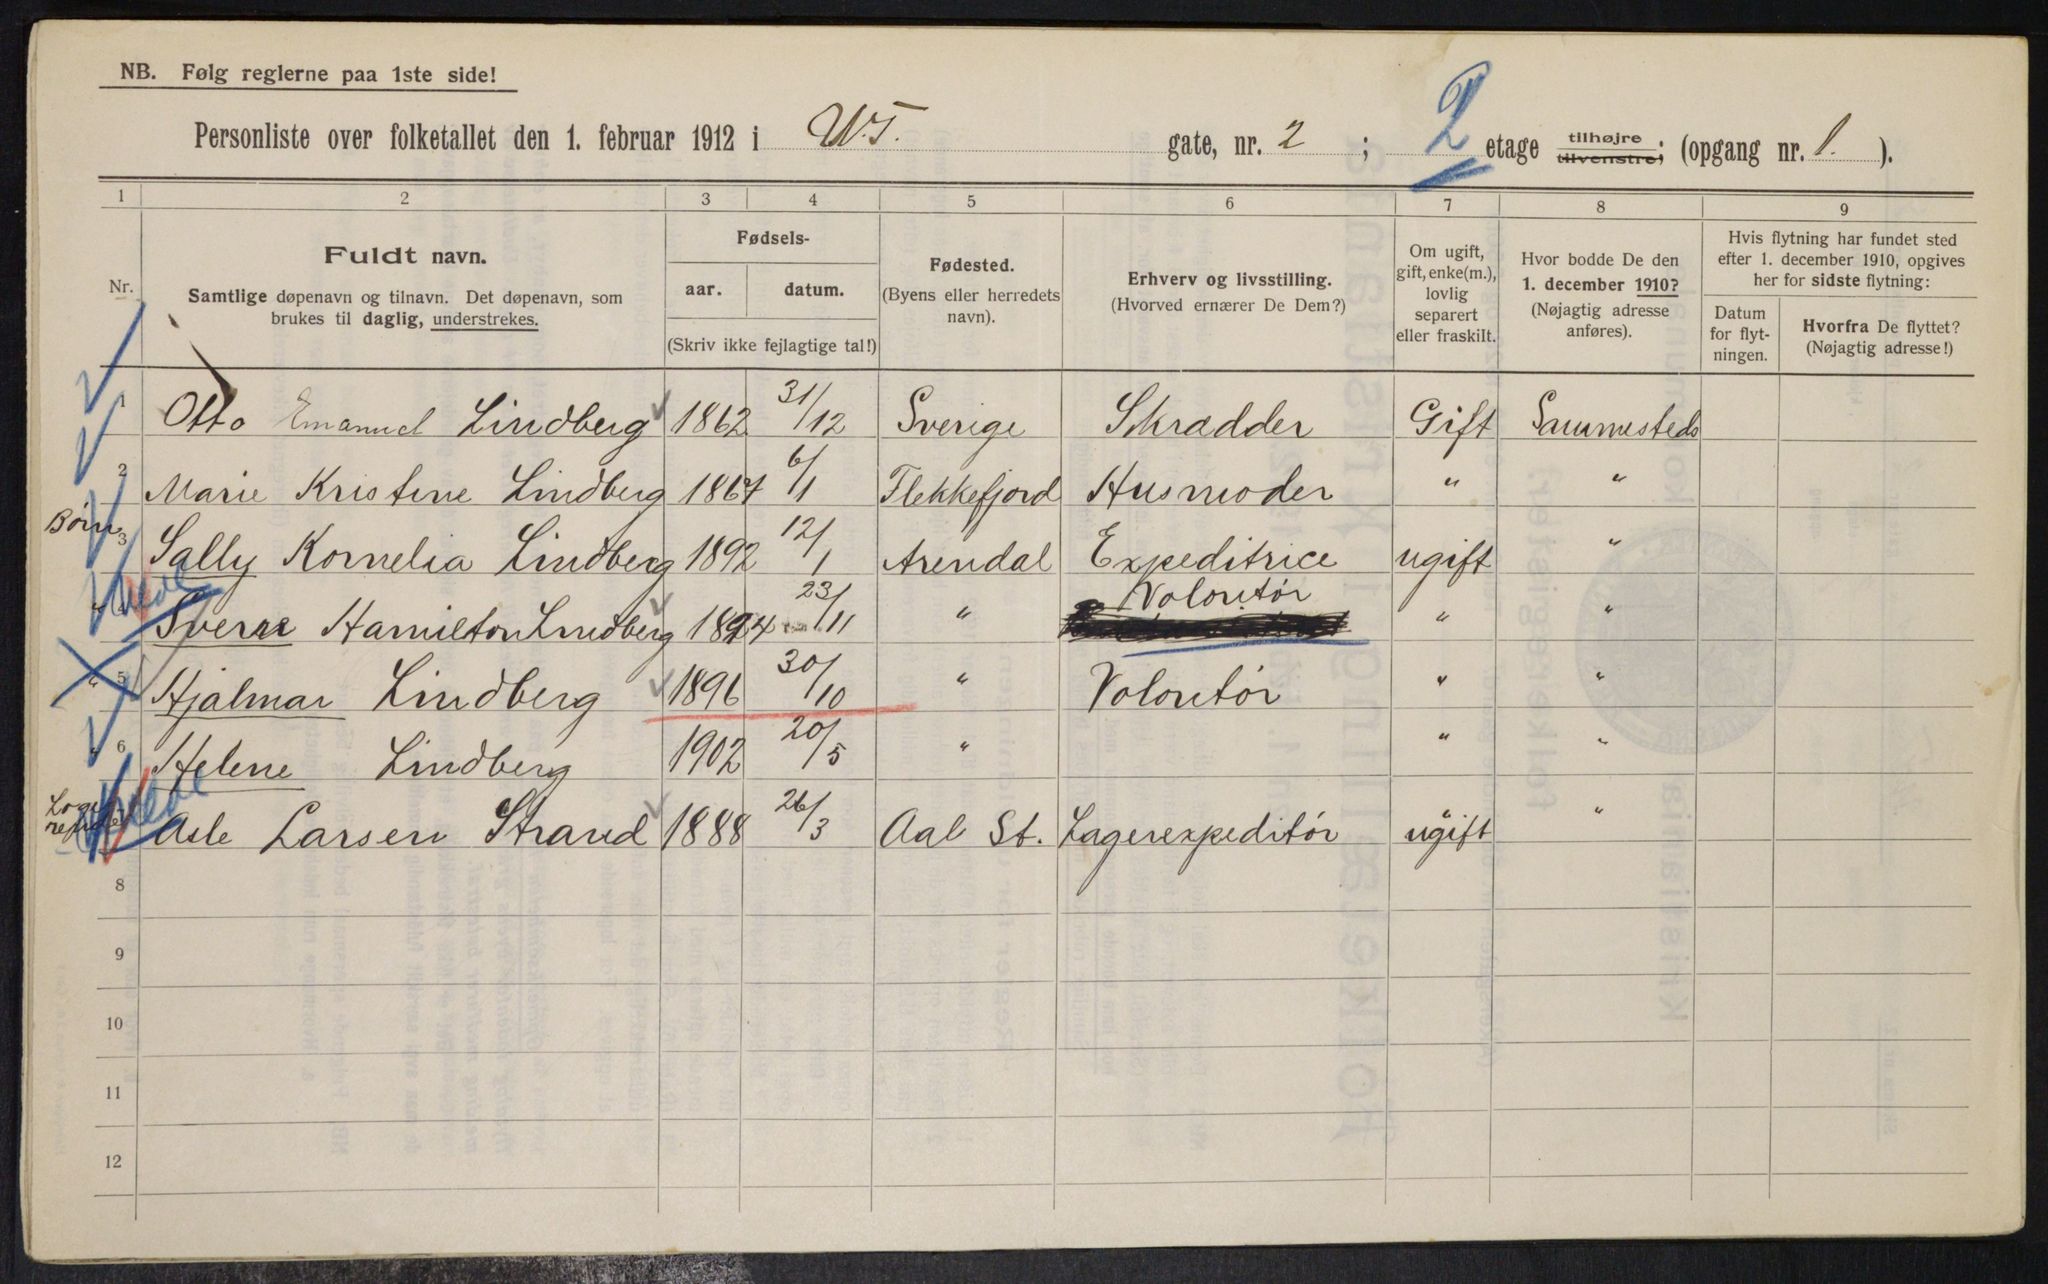 NB. Følg reglerne paa 1ste side!
Personliste over folketallet den 1. februar 1912 i W.T. gate, nr. 2 ; 2 etage tilhøjre tilvenstre; (opgang nr. 1. ).
1 2 3 4 5 6 7 8 9
Nr.
Fuldt navn.
Samtlige døpenavn og tilnavn. Det døpenavn, som
brukes til daglig, understrekes.
Fødsels-
aar. datum.
(Skriv ikke fejlagtige tal!)
Fødested.
(Byens eller herredets
navn).
Erhverv og livsstilling.
(Hvorved ernærer De Dem?)
Om ugift,
gift, enke(m.),
lovlig
separert
eller fraskilt.
Hvor bodde De den
1. december 1910?
(Nøjagtig adresse
anføres).
Hvis flytning har fundet sted
efter 1. december 1910, opgives
her for sidste flytning:
Datum
for flyt-
ningen.
Hvorfra De flyttet?
(Nøjagtig adresse!)
1 Otto Emanuel Lindberg 1862 31/12 Sverige Skrædder Gift Sammesteds
2 Marie Kristine Lindberg 1867 6/1 Flekkefjord Husmoder " "
Børn 3 Sally Kornelia Lindberg 1892 12/1 Arendal Expeditrice ugift "
" Sverre Hamilton Lindberg 1894 23/11 " Volontør " "
" 5 Hjalmar Lindberg 1896 30/10 " Volontør " "
" 6 Helene Lindberg 1902 20/5 " " "
Asle Larsen Strand 1888 26/3 Aal St. Lagerexpeditør ugift "
8
9
10
11
12